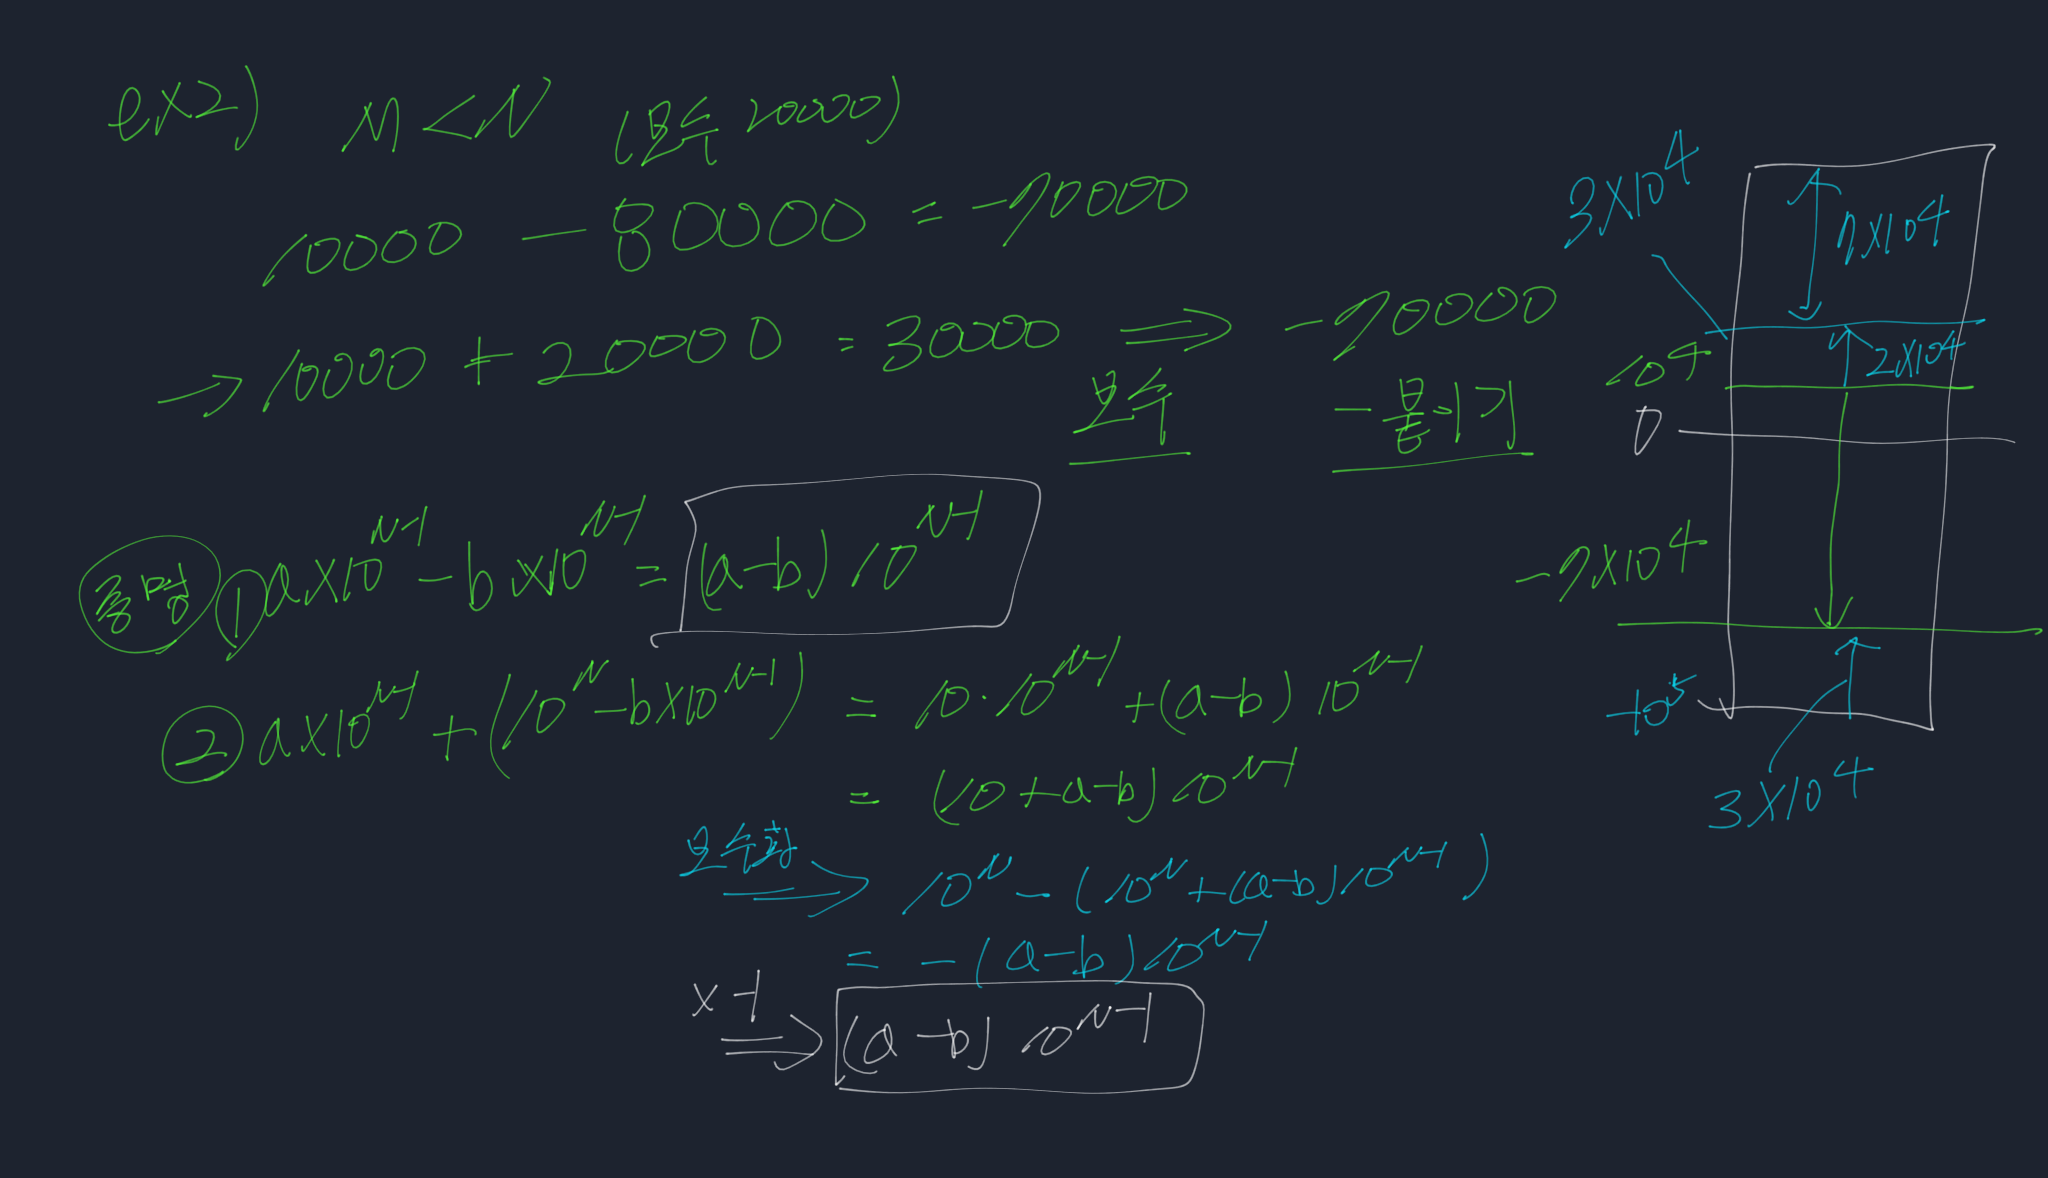 ex2) M < N (보수 20000)
10000 - 80000 = -70000
→ 10000 + 20000 = 30000 ⇒ -70000
보수 - 붙이기
증명 ① a×10^{N-1} - b×10^{N-1} = (a-b) 10^{N-1}
② a×10^{N-1} + (10^N - b×10^{N-1}) = 10·10^{N-1} + (a-b) 10^{N-1}
= (10+a-b) 10^{N-1}
보수를 ⇒ 10^N - (10^N + (a-b) 10^{N-1})
= -(a-b) 10^{N-1}
×-1 ⇒ (a-b) 10^{N-1}
3×10^4
7×10^4
2×10^4
10^4
0
-7×10^4
-10^5
3×10^4